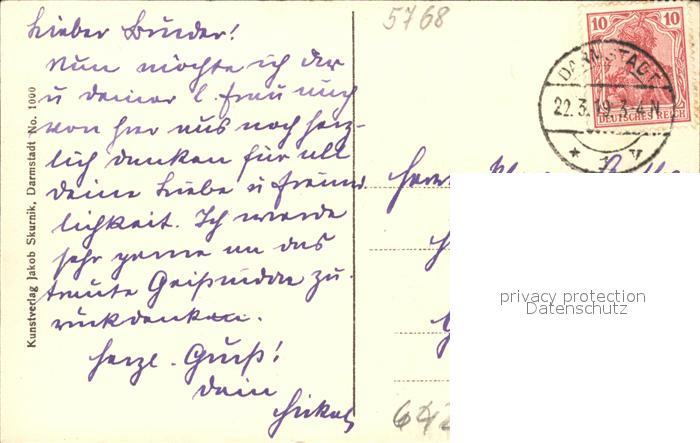 Lieber Bruder!
Nun möchte ich dir
u deiner l. Frau auch
von hier aus noch herz-
lich danken für all
deine Liebe u Freund-
lichkeit. Ich werde
sehr gerne an das
traute zu-
rückdenken.
Herzl. Gruß!
dein
Kunstverlag Jakob Skurnik, Darmstadt No. 1000
5768
10 10
DEUTSCHES REICH
DARMSTADT
22.3.19.3-4N
* 1 v
Herrn
privacy protection
Datenschutz